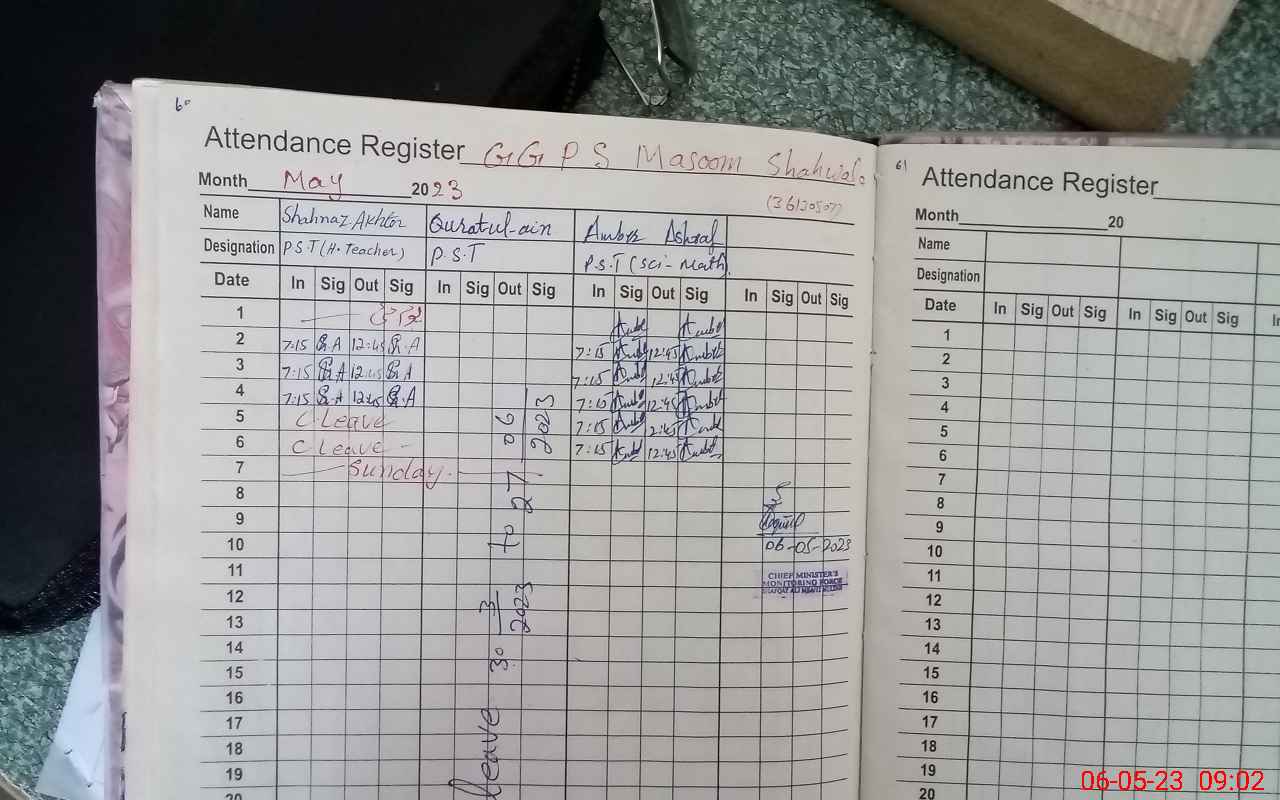 60
Attendance Register GGPS Masoom Shahwala
Month May 2023
(36120507)
Name Shahnaz Akhtar Quratul-ain Amber Ashraf
Designation P.S.T (H.Teacher) P.S.T P.S.T (Sci-Math)
Date In Sig Out Sig In Sig Out Sig In Sig Out Sig In Sig Out Sig
1
2 7:15 12:45 7:15 12:45
3 7:15 12:45 7:15 12:45
4 7:15 12:45 7:15 12:45
5 C.Leave 7:15 2:45
6 C Leave 7:15 12:45
7 Sunday.
8
9
10 06-05-2023
11 CHIEF MINISTER'S
12 MONITORING FORCE
13
14
15
16
17
18
19
20
leave 30 3/2023 to 27 06/2023
61
Attendance Register
Month 20
Name
Designation
Date In Sig Out Sig In Sig Out Sig
1
2
3
4
5
6
7
8
9
10
11
12
13
14
15
16
17
18
19
20
06-05-23 09:02